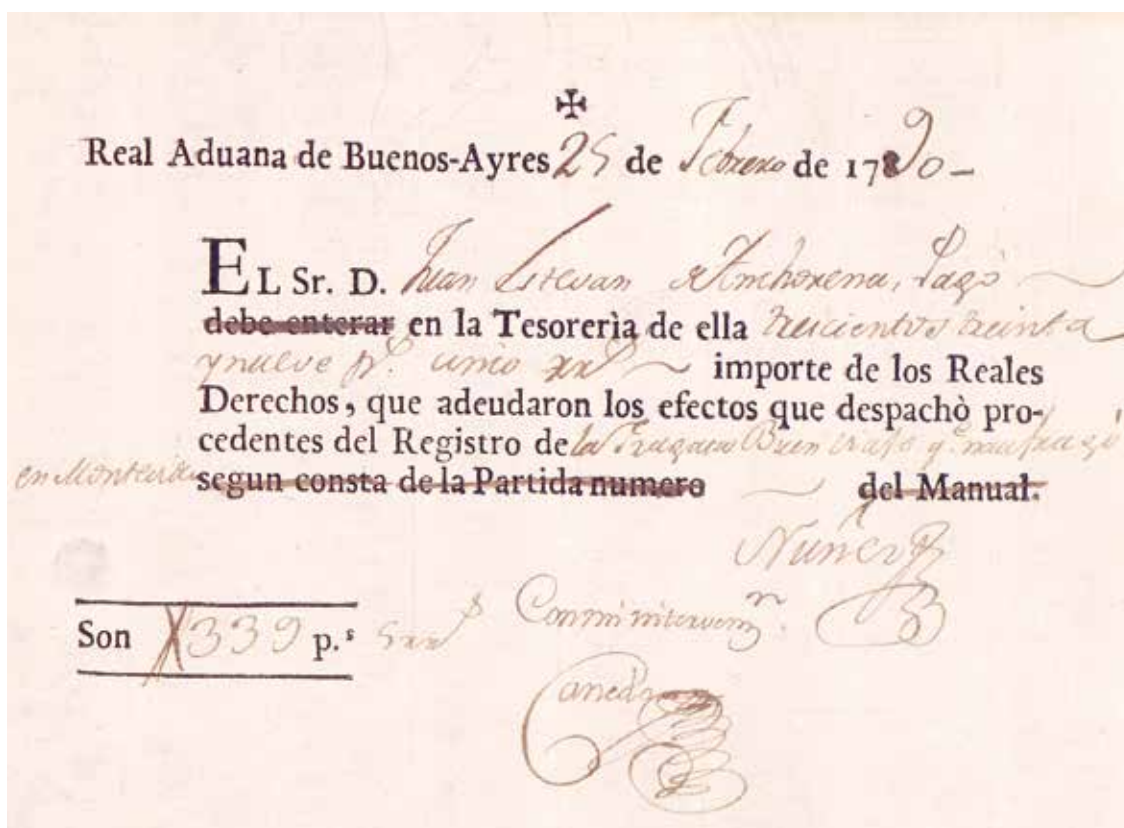 ✠
Real Aduana de Buenos-Ayres 25 de Febrero de 1790-
EL Sr. D. Juan Estevan de Anchorena, Pagò
debe enterar en la Tesorerìa de ella treicientos treinta
y nueve p.s cinco rr.s importe de los Reales
Derechos, que adeudaron los efectos que despachò pro-
cedentes del Registro de la Fragata Buen q.e naufragò
en Montevideo segun consta de la Partida numero del Manual.
Nuñez
Son 339 p.s 5 rr.s Con mi interven.n